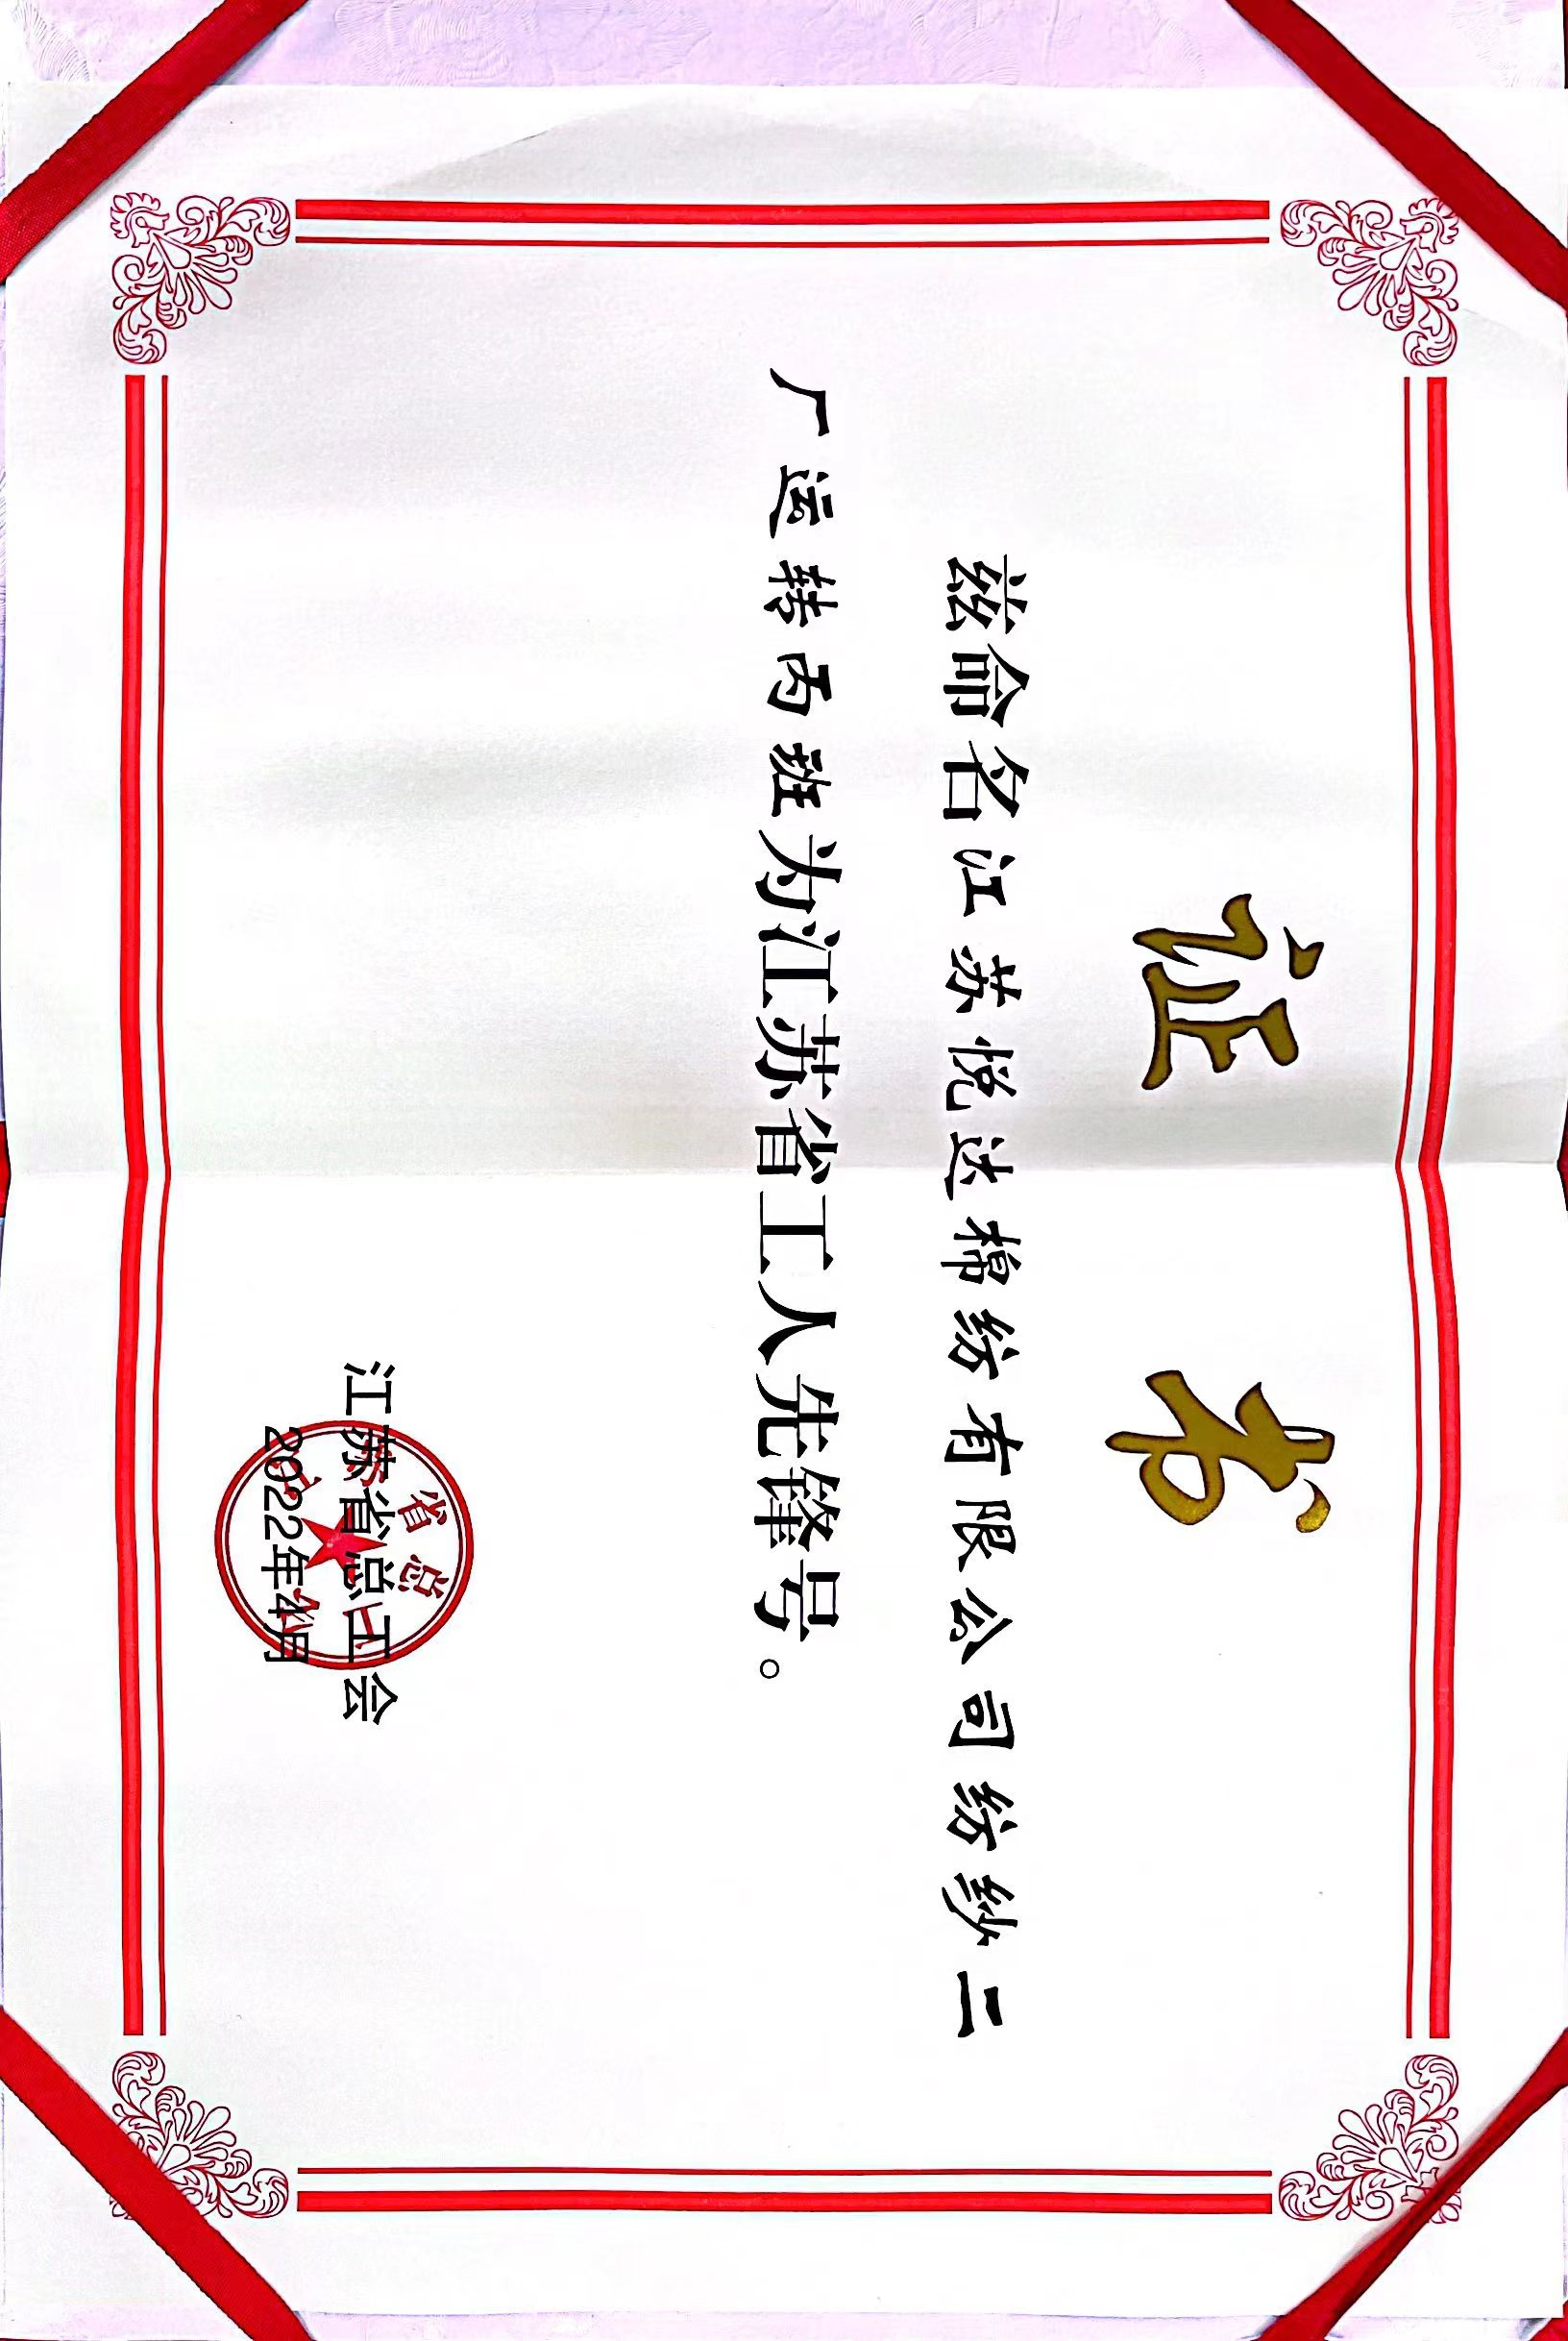 证书
兹命名江苏悦达棉纺有限公司纺纱二
厂运转丙班为江苏省工人先锋号。
江苏省总工会
2022年4月